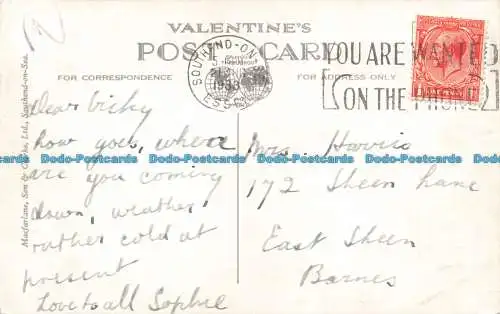 VALENTINE'S
POST CARD
FOR CORRESPONDENCE
FOR ADDRESS ONLY
SOUTHEND-ON
1933
ESSEX
YOU ARE WANTED
ON THE PHONE
Macfarlane, Son & Co., Ltd., Southend-on-Sea.
Dear Vicky
how goes, when
are you coming
down, weather
rather cold at
present
Love to all Sophie
Mrs Harris
172 Sheen Lane
East Sheen
Barnes
Dodo-Postcards Dodo-Postcards Dodo-Postcards Dodo-Postcards Dodo-Postcards